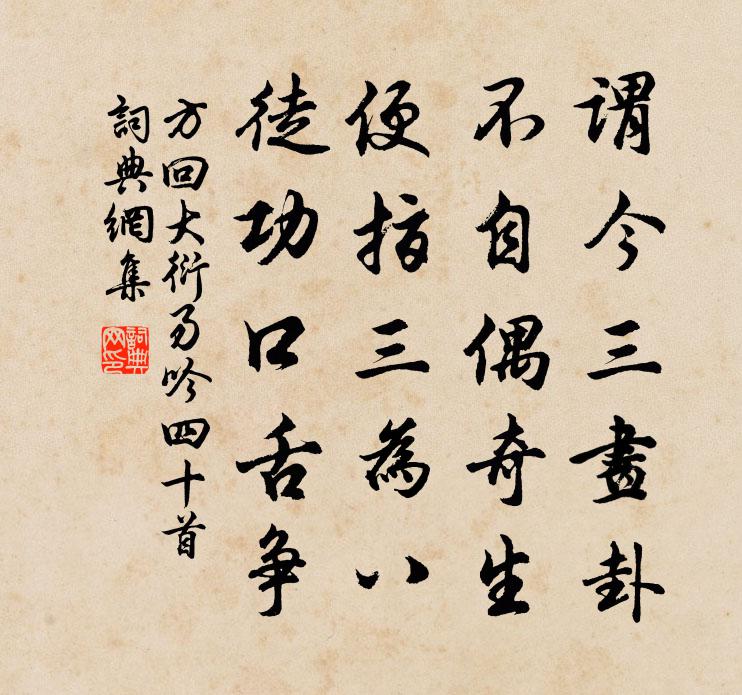 謂今三畫卦
不自偶奇生
便指三為八
徒功口舌争
方回大衍易吟四十首
詞典網集
詞典網印